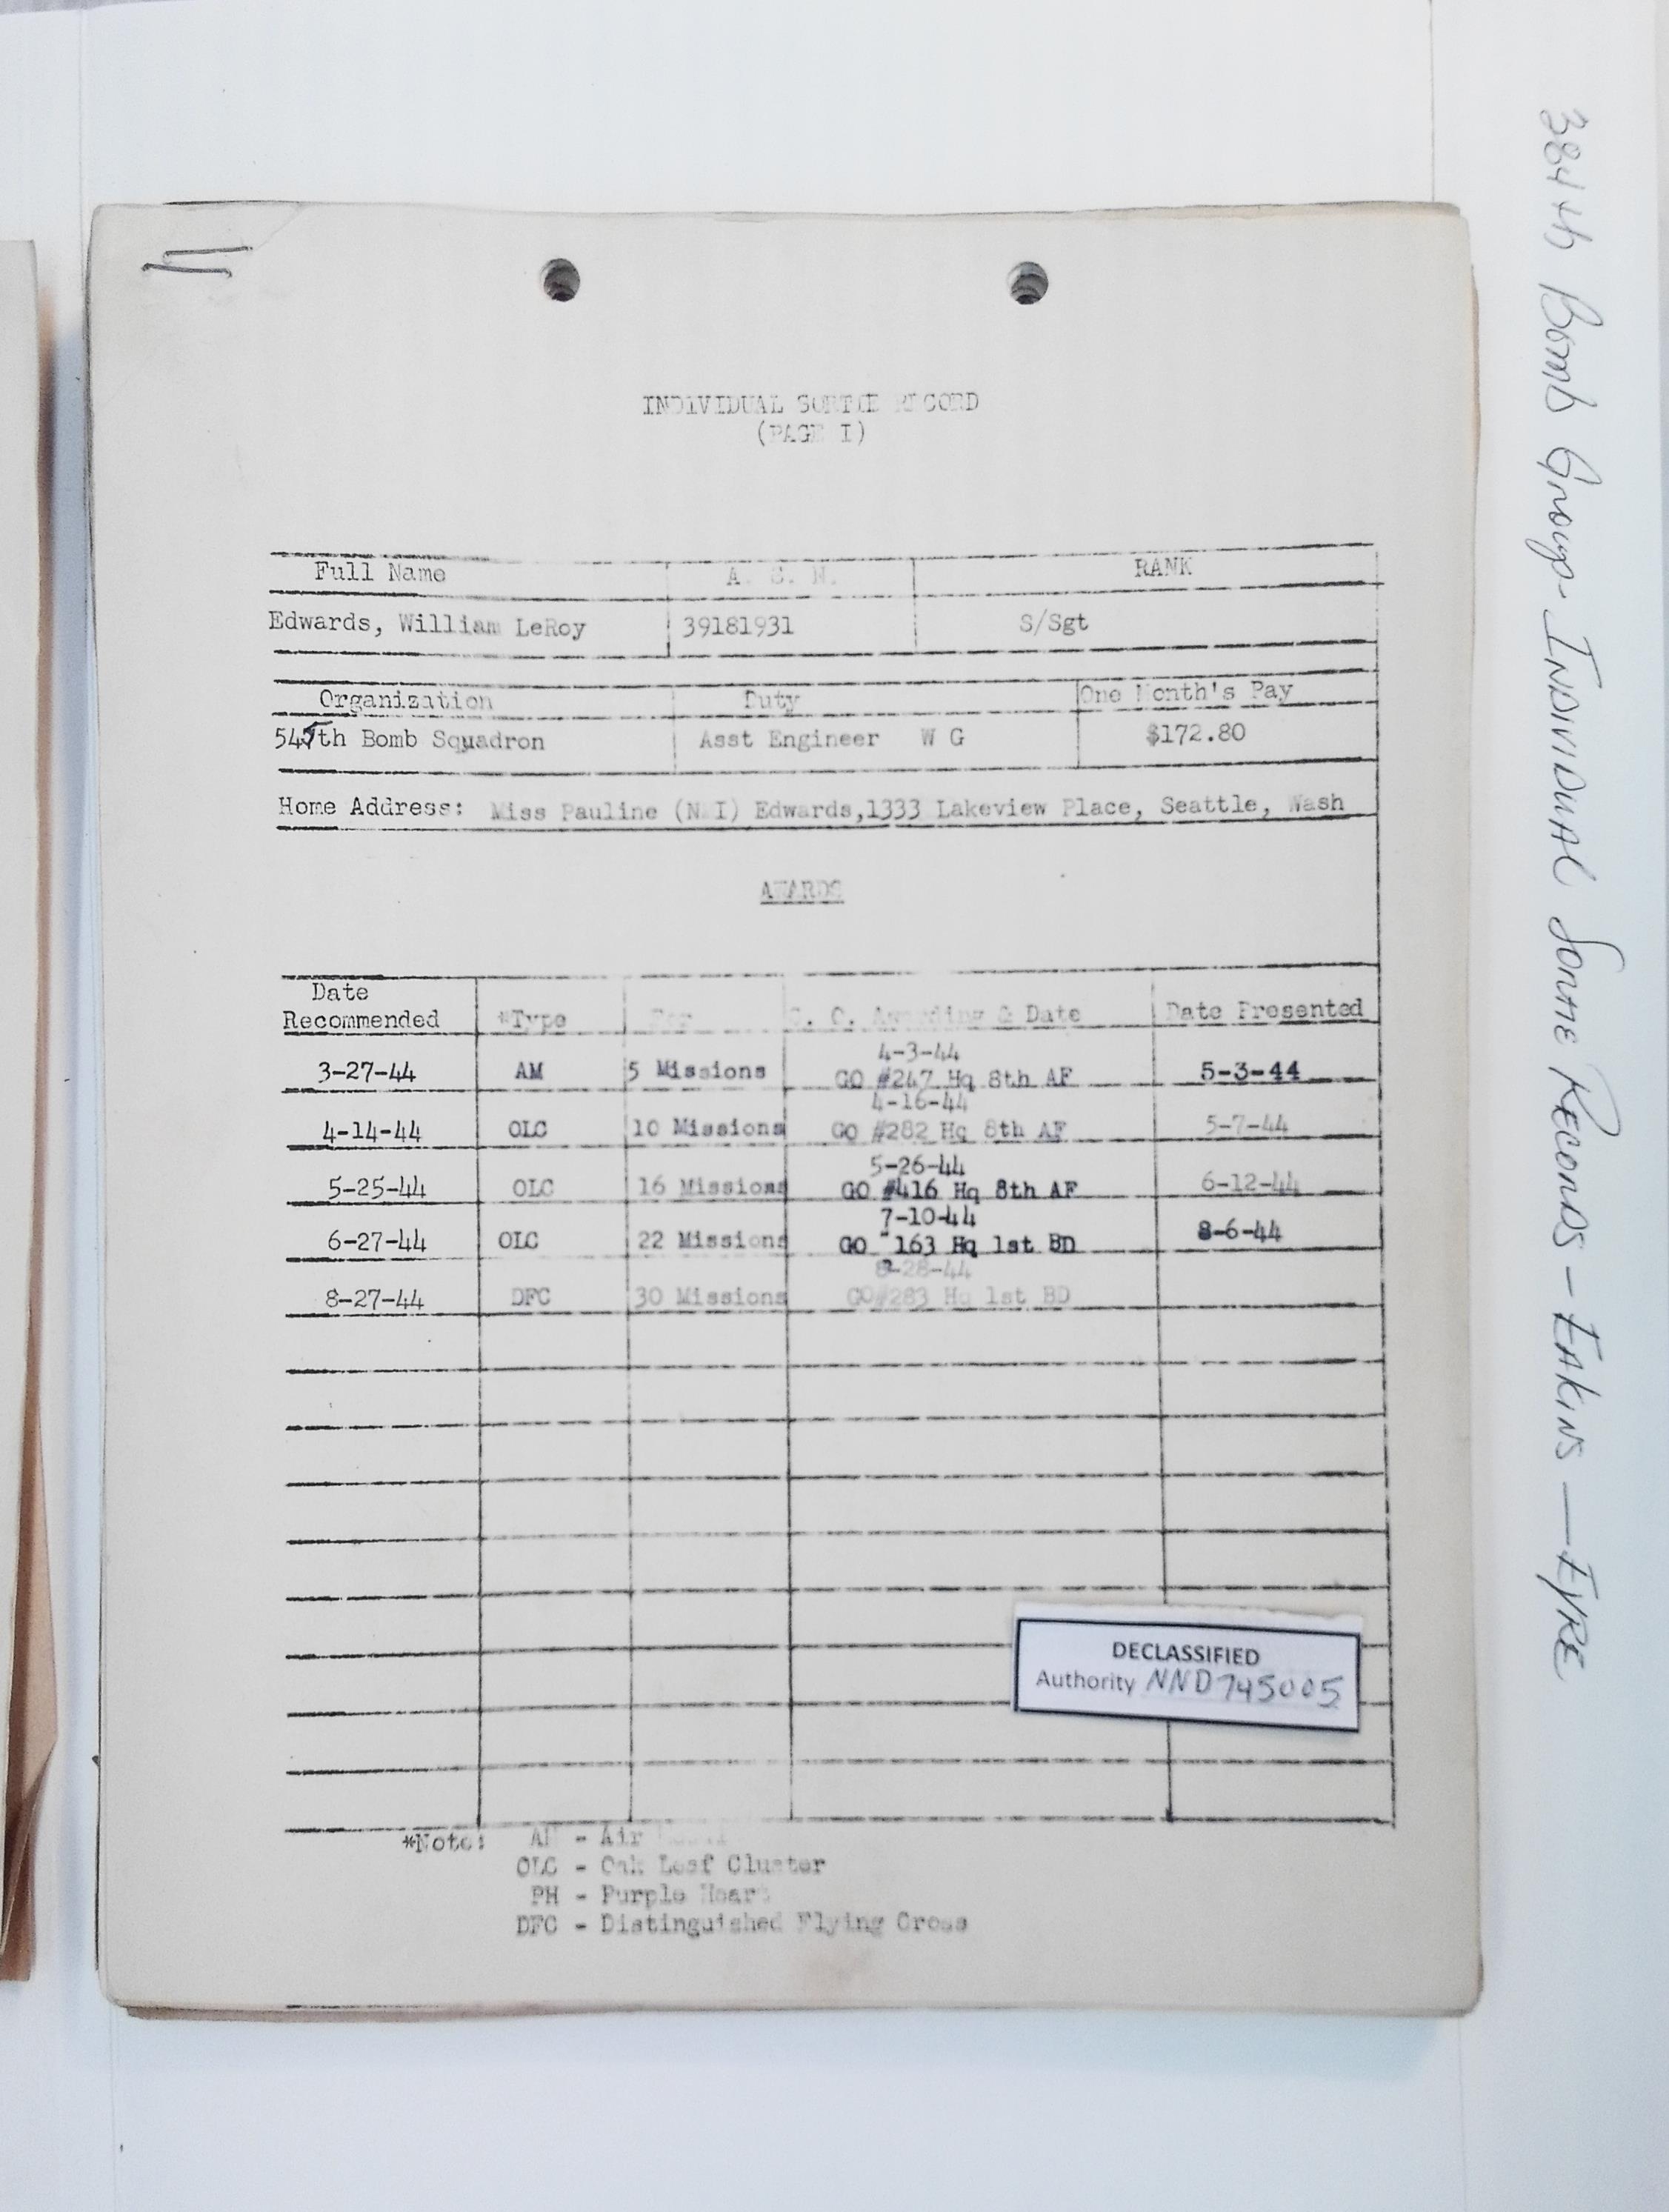 INDIVIDUAL SORTIE RECORD
(PAGE I)
Full Name A. S. N. RANK
Edwards, William LeRoy 39181931 S/Sgt
Organization Duty One Month's Pay
545th Bomb Squadron Asst Engineer W G $172.80
Home Address: Miss Pauline (NMI) Edwards,1333 Lakeview Place, Seattle, Wash
AWARDS
Date
Recommended *Type For G. O. Awarding & Date Date Presented
4-3-44
3-27-44 AM 5 Missions GO #247 Hq 8th AF 5-3-44
4-16-44
4-14-44 OLC 10 Missions GO #282 Hq 8th AF 5-7-44
5-26-44
5-25-44 OLC 16 Missions GO #416 Hq 8th AF 6-12-44
7-10-44
6-27-44 OLC 22 Missions GO "163 Hq 1st BD 8-6-44
8-28-44
8-27-44 DFC 30 Missions GO#283 Hq 1st BD
DECLASSIFIED
Authority NND745005
*Note: AM - Air
OLC - Oak Leaf Cluster
PH - Purple Heart
DFC - Distinguished Flying Cross
384th Bomb Group - INDIVIDUAL SORTIE RECORDS - EAKINS — EYRE